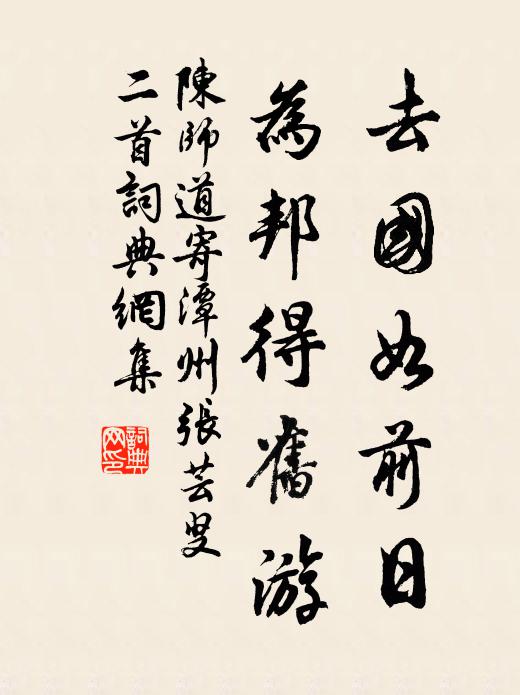 去國如前日
為邦得舊游
陳師道寄潭州張芸叟
二首詞典網集
詞典
网印